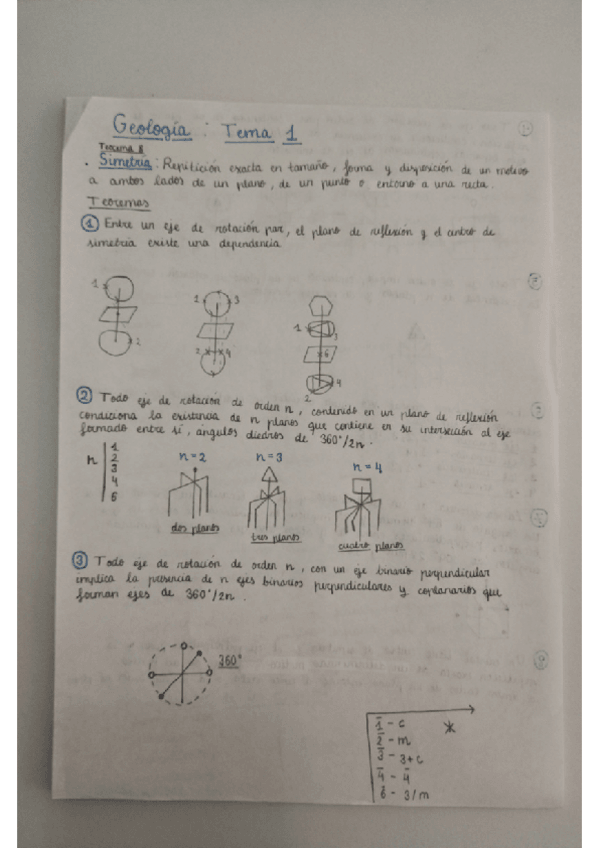 Geología : Tema 1
Simetría: Repitición exacta en tamaño, forma y disposición de un motivo
a ambos lados de un plano, de un punto o entorno a una recta.
Teoremas
① Entre un eje de rotación par, el plano de reflexión y el centro de
simetría existe una dependencia
1 2
1 3 2 4
1 3 6 4 2
② Todo eje de rotación de orden n, contenido en un plano de reflexión
condiciona la existencia de n planos que contiene en su intersección al eje
formado entre sí, ángulos diedros de 360°/2n.
n 1 2 3 4 6
n=2 n=3 n=4
dos planos tres planos cuatro planos
③ Todo eje de rotación de orden n, con un eje binario perpendicular
implica la presencia de n ejes binarios perpendiculares y coplanarios que
forman ejes de 360°/2n.
360°
1̅ - c
2̅ - m
3̅ - 3+c
4̅ - 4̅
6̅ - 3/m